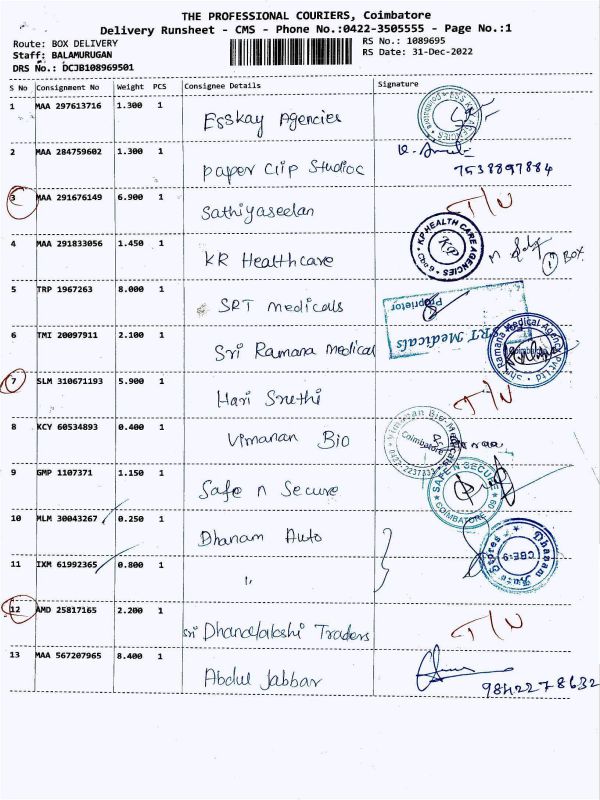 THE PROFESSIONAL COURIERS, Coimbatore
Delivery Runsheet - CMS - Phone No.:0422-3505555 - Page No.:1
Route: BOX DELIVERY
Staff: BALAMURUGAN
DRS No.: DCJB108969501
RS No.: 1089695
RS Date: 31-Dec-2022
S No Consignment No Weight PCS Consignee Details Signature
1 MAA 297613716 1.300 1 Esskay Agencies
2 MAA 284759602 1.300 1 paper clip Studioc
7538897884
3 MAA 291676149 6.900 1 Sathiyaseelan T/N
4 MAA 291833056 1.450 1 KR Healthcare
KP HEALTH CARE AGENCIES
KP
1 BOX
5 TRP 1967263 8.000 1 SRT medicals
Proprietor
SRT Medicals
6 TMI 20097911 2.100 1 Sri Ramana medical
Shri Ramana Medical Agency Pvt Ltd
7 SLM 310671193 5.900 1 Hari Sruthi T/N
8 KCY 60534893 0.400 1 Vimanan Bio
Coimbatore
9 GMP 1107371 1.150 1 Safe n Secure
SAFE N SECURE
COIMBATORE
10 MLM 30043267 0.250 1 Dhanam Auto
11 IXM 61992365 0.800 1 "
Dhanam Auto Stores
CBE-9
12 AMD 25817165 2.200 1 Sri Dhanalakshi Traders T/N
13 MAA 567207965 8.400 1 Abdul Jabbar
9842278632